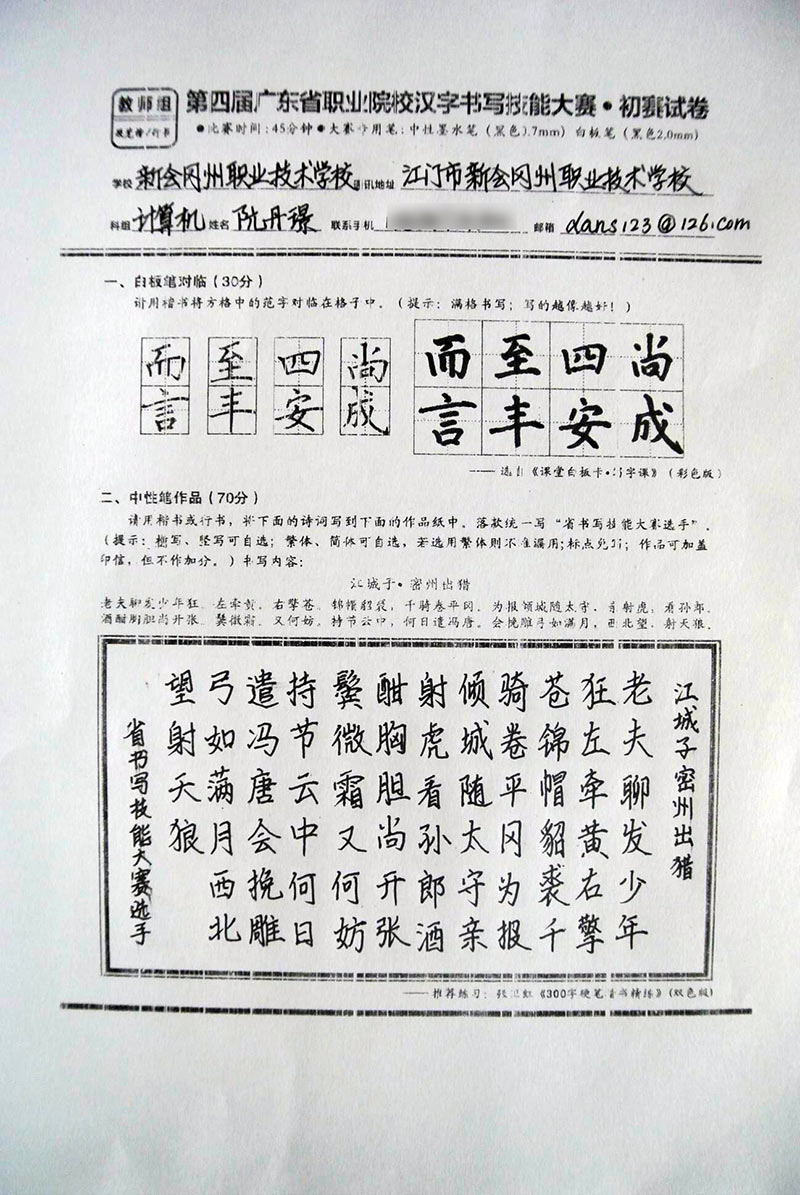 教师组
硬笔楷/行书
第四届广东省职业院校汉字书写技能大赛·初赛试卷
●比赛时间:45分钟●大赛专用笔:中性墨水笔(黑色0.7mm) 白板笔(黑色2.0mm)
学校 新会冈州职业技术学校 通讯地址 江门市新会冈州职业技术学校
科组 计算机 姓名 阮丹璟 联系手机 邮箱 dans123@126.com
一、白板笔对临(30分)
请用楷书将方格中的范字对临在格子中。(提示:满格书写;写的越像越好!)
而 至 四 尚 而至四尚
言 丰 安 成 言丰安成
——选自《课堂白板卡·写字课》(彩色版)
二、中性笔作品(70分)
请用楷书或行书,将下面的诗词写到下面的作品纸中。落款统一写“省书写技能大赛选手”。
(提示:横写、竖写可自选;繁体、简体可自选,若选用繁体则不准漏用;标点免写;作品可加盖
印信,但不作加分。)书写内容:
江城子·密州出猎
老夫聊发少年狂。左牵黄。右擎苍。锦帽貂裘,千骑卷平冈。为报倾城随太守,亲射虎,看孙郎。
酒酣胸胆尚开张。鬓微霜。又何妨。持节云中,何日遣冯唐。会挽雕弓如满月,西北望,射天狼。
江城子密州出猎
老夫聊发少年
狂左牵黄右擎
苍锦帽貂裘千
骑卷平冈为报
倾城随太守亲
射虎看孙郎酒
酣胸胆尚开张
鬓微霜又何妨
持节云中何日
遣冯唐会挽雕
弓如满月西北
望射天狼
省书写技能大赛选手
——推荐练习:张 虹《300字硬笔楷书精练》(双色版)